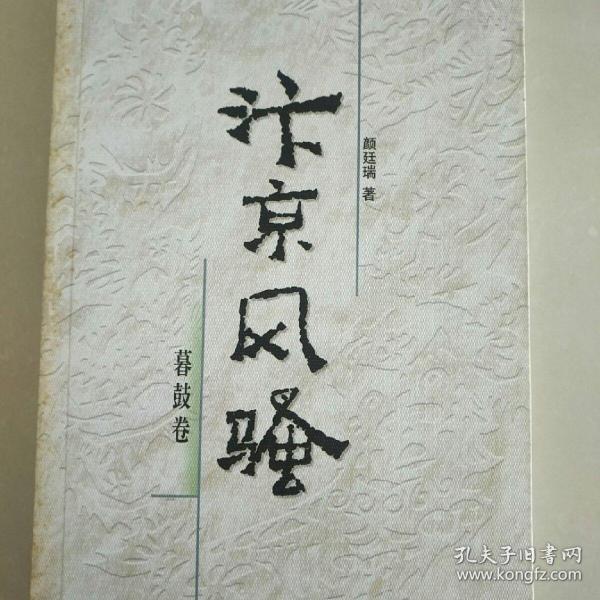 汴京风骚
颜廷瑞 著
暮鼓卷
孔夫子旧书网
www.kongfz.com